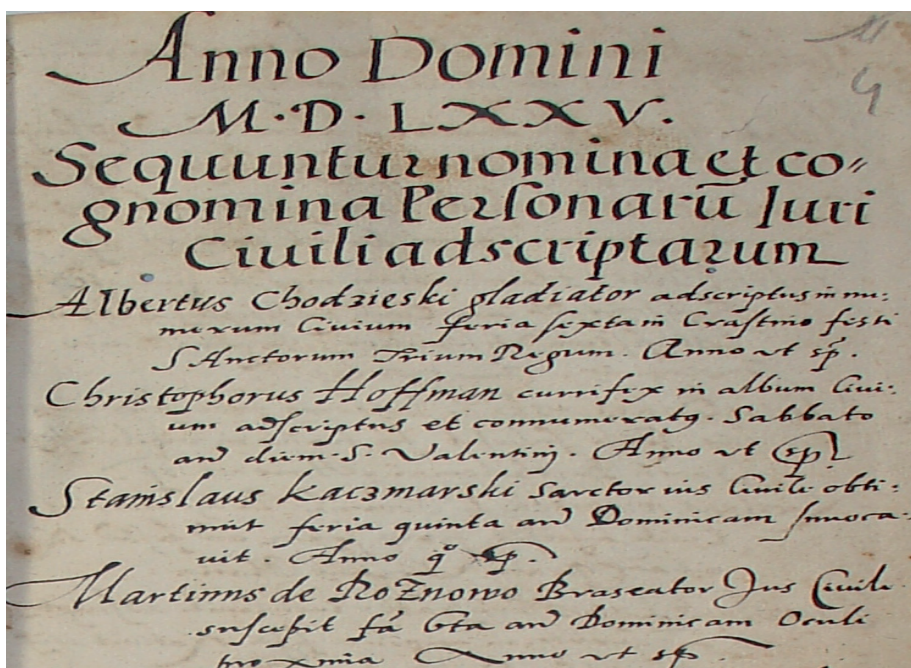 Anno Domini
M·D·LXXV.
Sequuntur nomina et co=
gnomina Personarū Iuri
Ciuili adscriptarum
Albertus Chodzieski gladiator adscriptus in nu:
merum Ciuium feria sexta in Crastino festi
SAnctorum Trium Regum. Anno vt sp̄.
Christophorus Hoffman currifex in album Ciui:
um adscriptus et connumeratꝰ. Sabbato
an̄ diem. S. Valentinj. Anno vt sp̄
Stanislaus Kaczmarski Sarctor ius Ciuile obti:
nuit feria quinta an̄ Dominicam Inuoca
uit. Anno qͦ sp̄.
Martinus de Rożnowo Braseator Jus Ciuile
suscepit fā 6ta an̄ Dominicam Oculi
proxima Anno vt sp̄